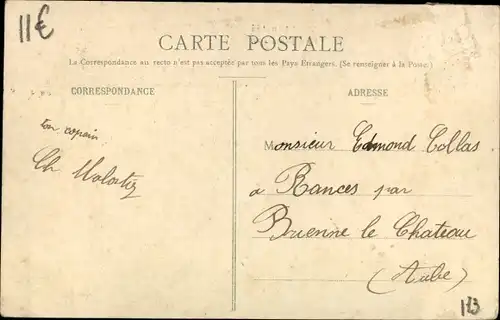 11€
CARTE POSTALE
La Correspondance au recto n'est pas acceptée par tous les Pays Étrangers. (Se renseigner à la Poste.)
CORRESPONDANCE
ton copain
Ch
ADRESSE
Monsieur Edmond Collas
à Rances par
Brienne le Chateau
(Aube)
113